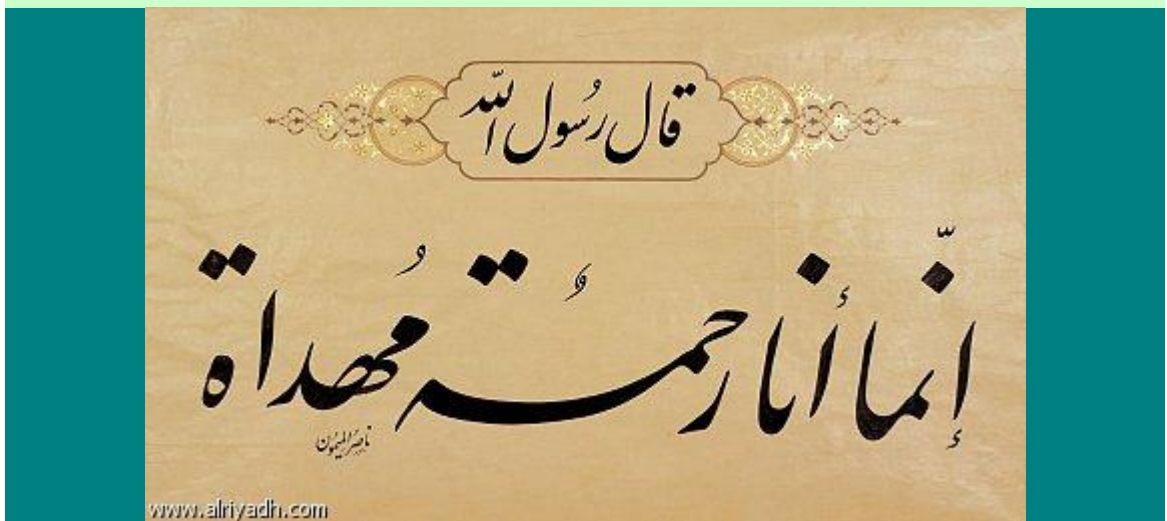 قال رسول الله
إنّما أنا رحمةٌ مُهداة
ناصر الميمون
www.alriyadh.com